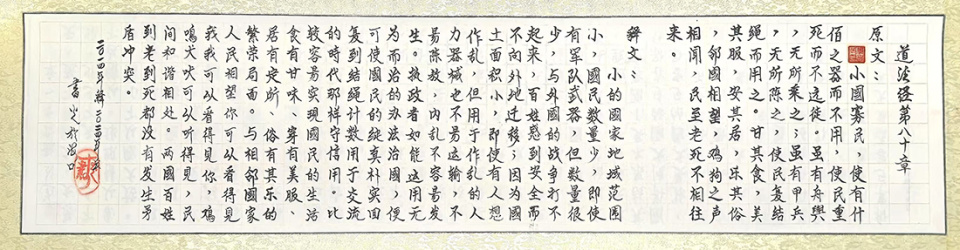 道德經第八十章
原文：
小國寡民，使有什
佰之器而不用，使民重
死而不远徙。虽有舟輿
，无所乘之；虽有甲兵
，无所陈之，使民复结
绳而用之。甘其食，美
其服，安其居，乐其俗
，邻國相望，鸡狗之声
相闻，民至老死不相往
来。
释文：
小的國家地域范围
小，國民数量少，即使
有军队武器，但数量很
少，与外國的战争打不
起来，百姓感到安全而
不向外地迁移；因为國
土面积小，即使有人想
作乱，但用于作乱的人
力器械也不易运输，不
易陈放，内乱不容易发
生。执政者如能运用无
为而治的办法治國，便
可使國民的纯真朴实回
复到结绳计数用于交流
的時代那样守信用。比
较容易实現國民的生活
食有甘味、穿有美服、
居有定所、俗有其乐的
繁荣局面。与相邻國家
人民相望你可以看得見
我我可以看得見你，鸡
鳴犬吠可以听得見，民
间和谐相处。两國百姓
到老到死都没有发生矛
盾冲突。